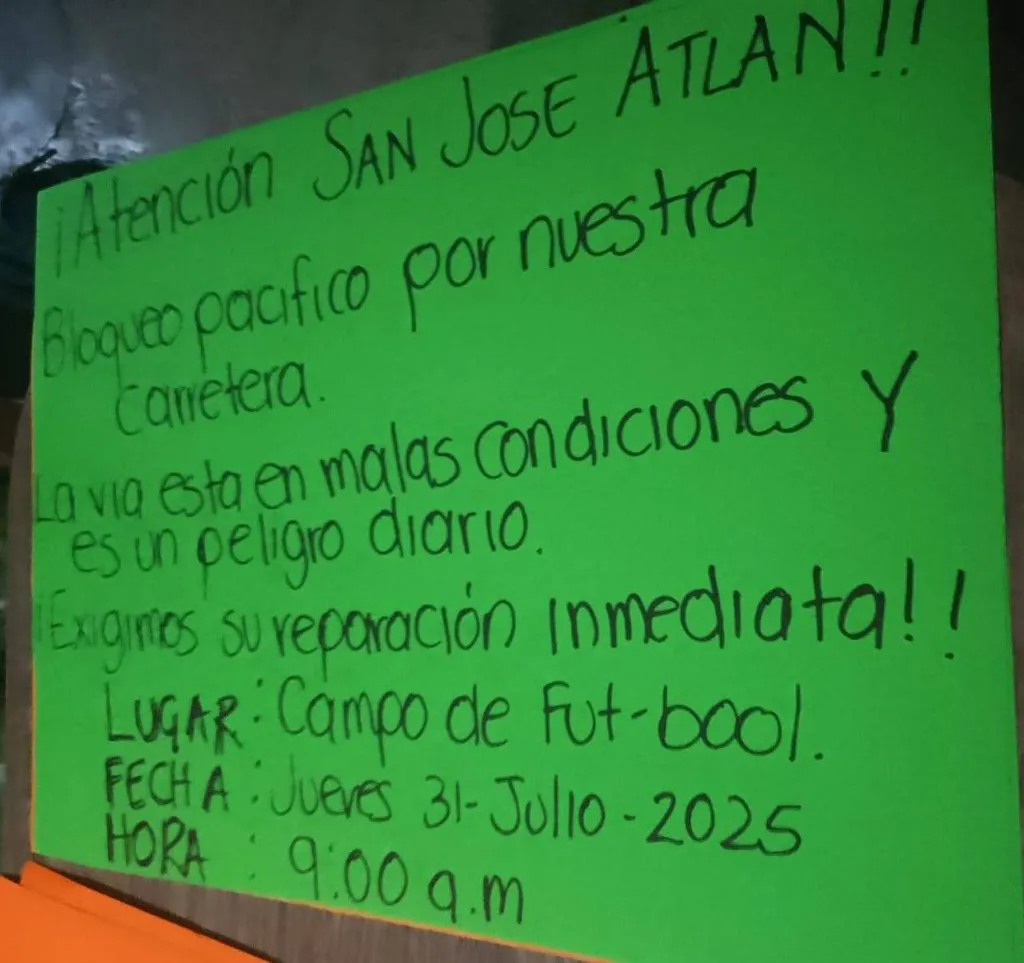 ¡Atención SAN JOSE ATLAN!!
Bloqueo pacifico por nuestra
carretera.
La via esta en malas condiciones Y
es un peligro diario.
¡Exigimos su reparación inmediata!!
LUGAR: Campo de Fut-bool.
FECHA: Jueves 31-Julio-2025
HORA: 9:00 a.m